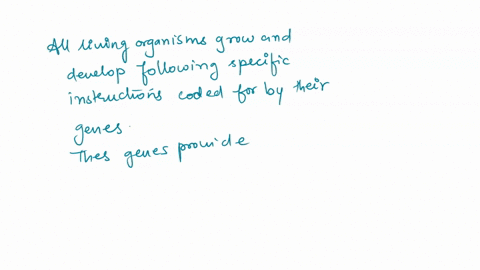 All living organisms grow and
develop following specific
instructions coded for by their
genes.
Thes genes provide